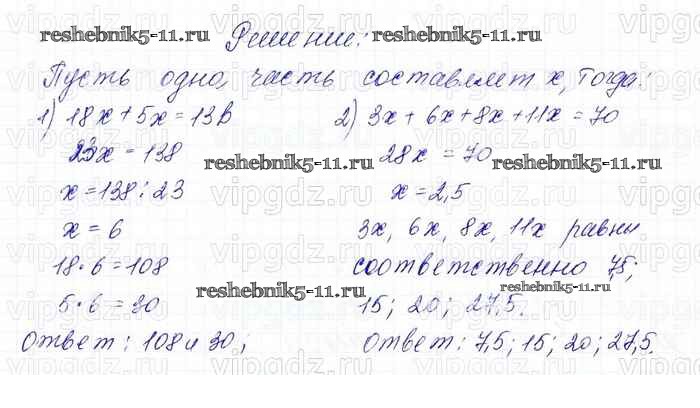 Решение:
Пусть одна часть составляет x, тогда:
1) 18x + 5x = 138
23x = 138
x = 138 : 23
x = 6
18 · 6 = 108
5 · 6 = 30
ответ: 108 и 30;
2) 3x + 6x + 8x + 11x = 70
28x = 70
x = 2,5
3x, 6x, 8x, 11x равны
соответственно 7,5;
15; 20; 27,5.
ответ: 7,5; 15; 20; 27,5.
reshebnik5-11.ru
reshebnik5-11.ru
reshebnik5-11.ru
reshebnik5-11.ru
reshebnik5-11.ru
reshebnik5-11.ru
vipgdz.ru